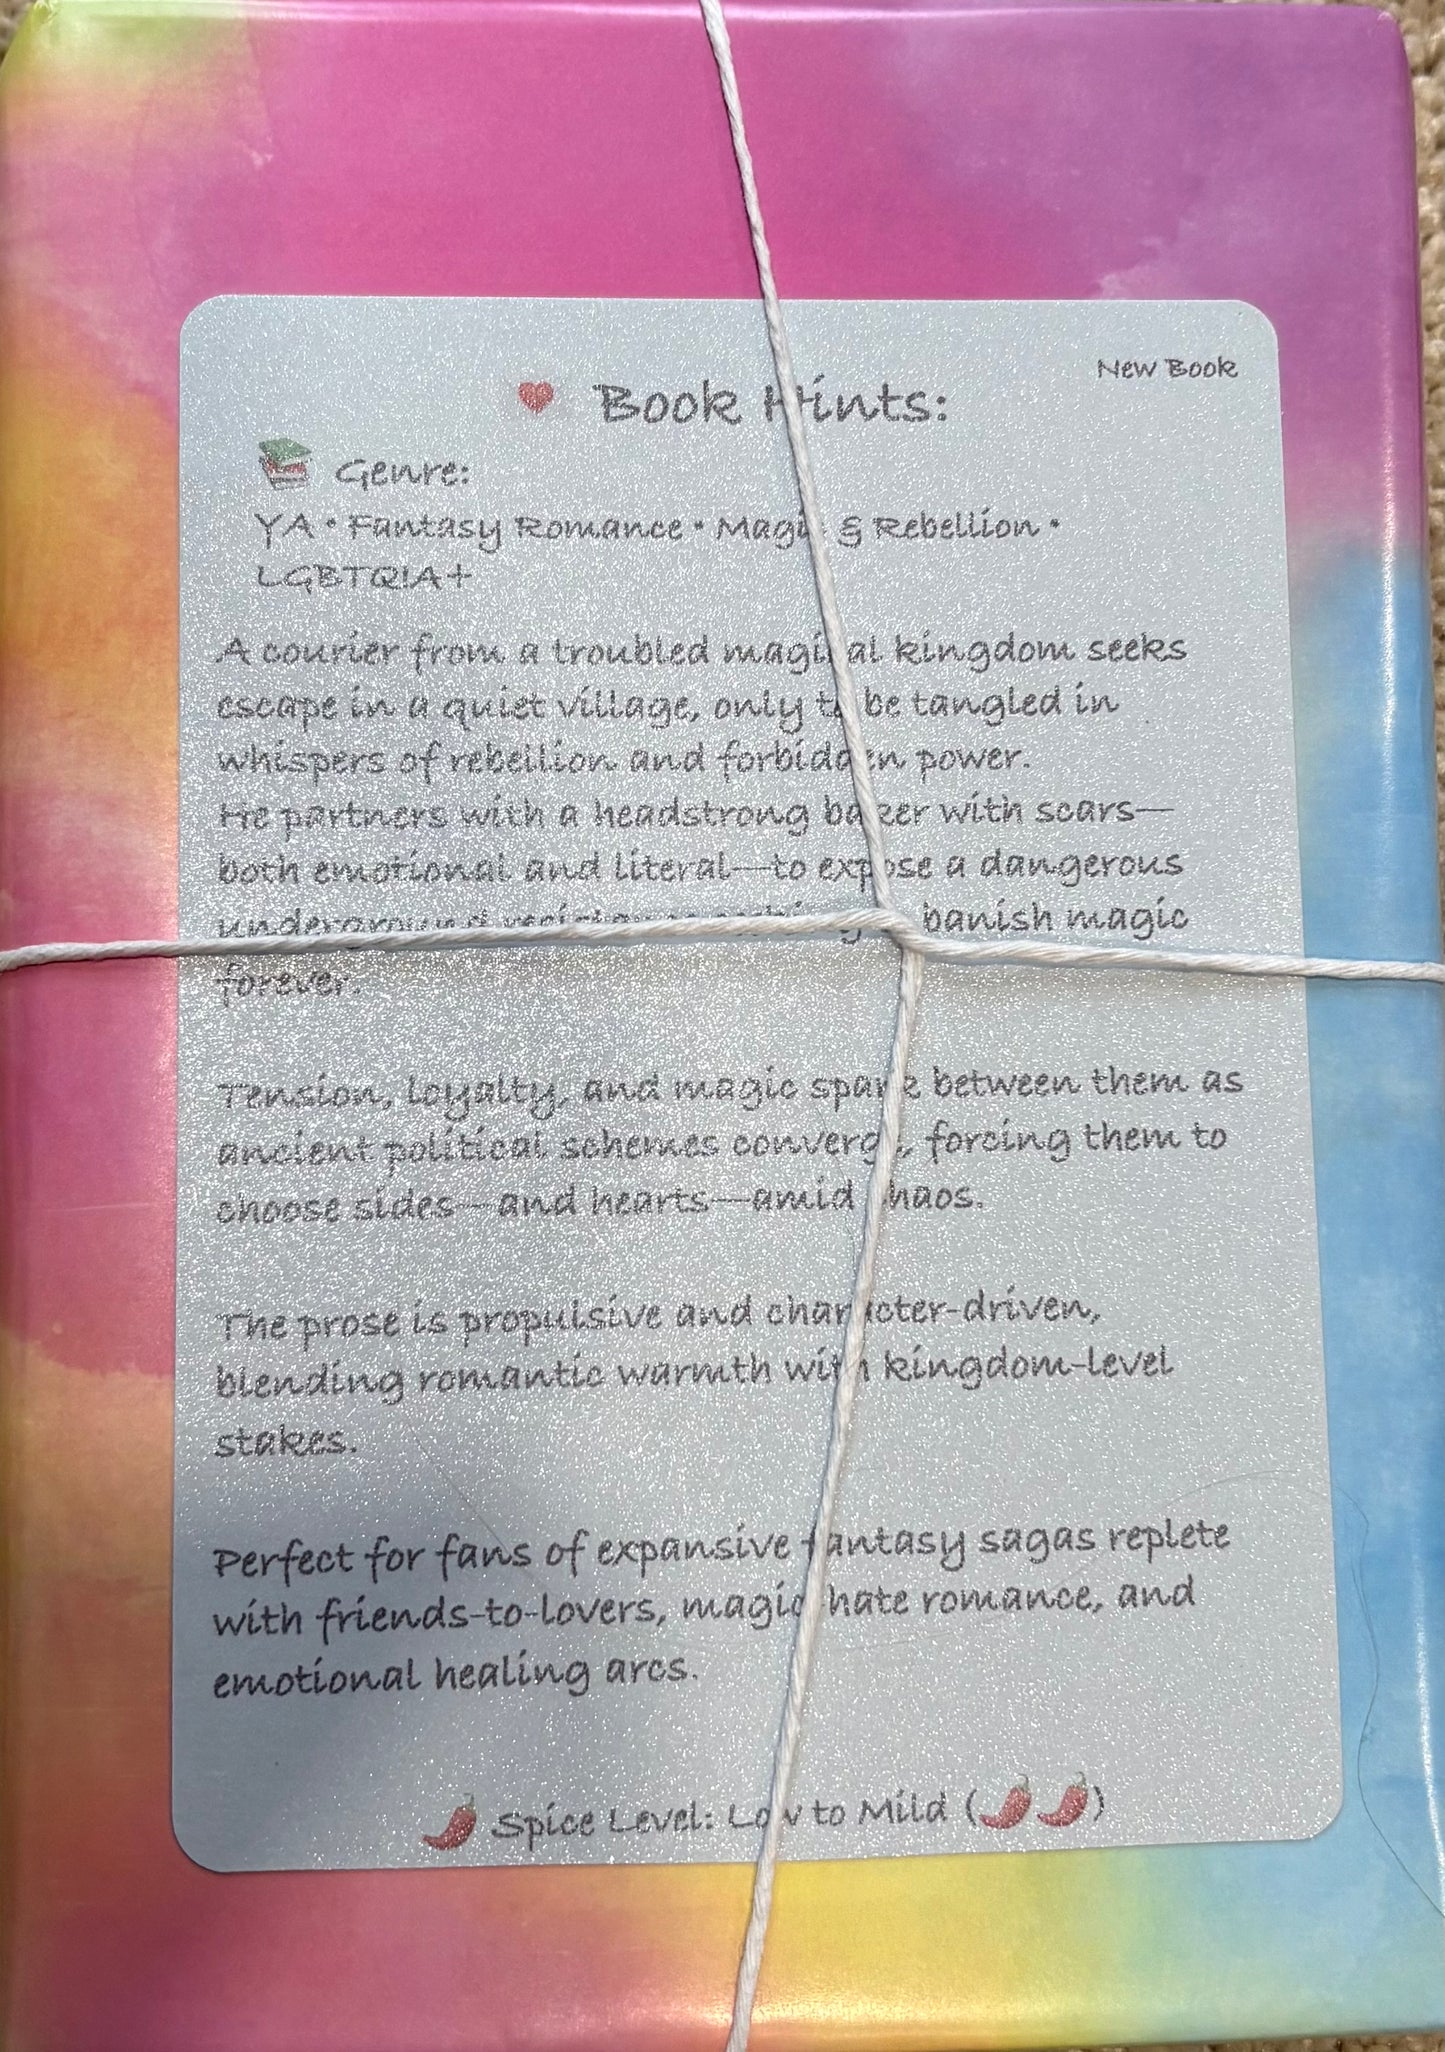 New Book
Book Hints:
Genre:
YA • Fantasy Romance • Magic & Rebellion •
LGBTQIA+
A courier from a troubled magical kingdom seeks
escape in a quiet village, only to be tangled in
whispers of rebellion and forbidden power.
He partners with a headstrong baker with scars—
both emotional and literal—to expose a dangerous
underground banish magic
forever.
Tension, loyalty, and magic spark between them as
ancient political schemes converge, forcing them to
choose sides—and hearts—amid chaos.
The prose is propulsive and character-driven,
blending romantic warmth with kingdom-level
stakes.
Perfect for fans of expansive fantasy sagas replete
with friends-to-lovers, magic-hate romance, and
emotional healing arcs.
Spice Level: Low to Mild (🌶️🌶️)